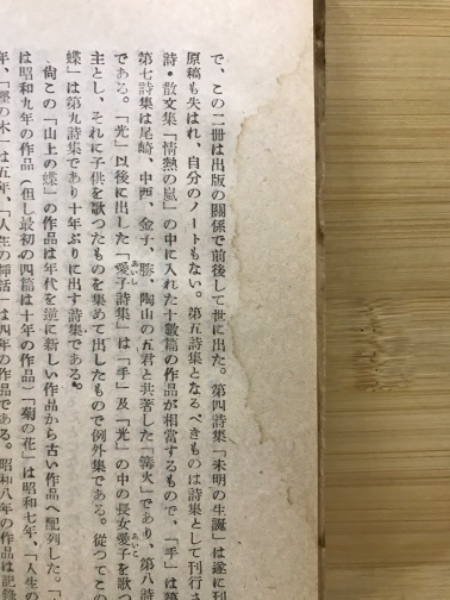 で、この二冊は出版の關係で前後して世に出た。第四詩集「未明の生誕」は遂に刊
原稿も失はれ、自分のノートもない。第五詩集となるべきものは詩集として刊行さ
詩・散文集「情熱の嵐」の中に入れた十數篇の作品が相當するもので、「手」は第
第七詩集は尾崎、中西、金子、勝、陶山の五君と共著した「篝火」であり、第八詩
である。「光」以後に出した「愛子詩集」は「手」及「光」の中の長女愛子を歌つ
主とし、それに子供を歌つたものを集めて出したもので例外集である。從つてこの
蝶」は第九詩集であり十年ぶりに出す詩集である。
尙この「山上の蝶」の作品は年代を逆に新しい作品から古い作品へ配列した。「
は昭和九年の作品（但し最初の四篇は十年の作品）「菊の花」は昭和七年、「人生の
年、「樫の木」は五年、「人生の插話」は四年の作品である。昭和八年の作品は記錄